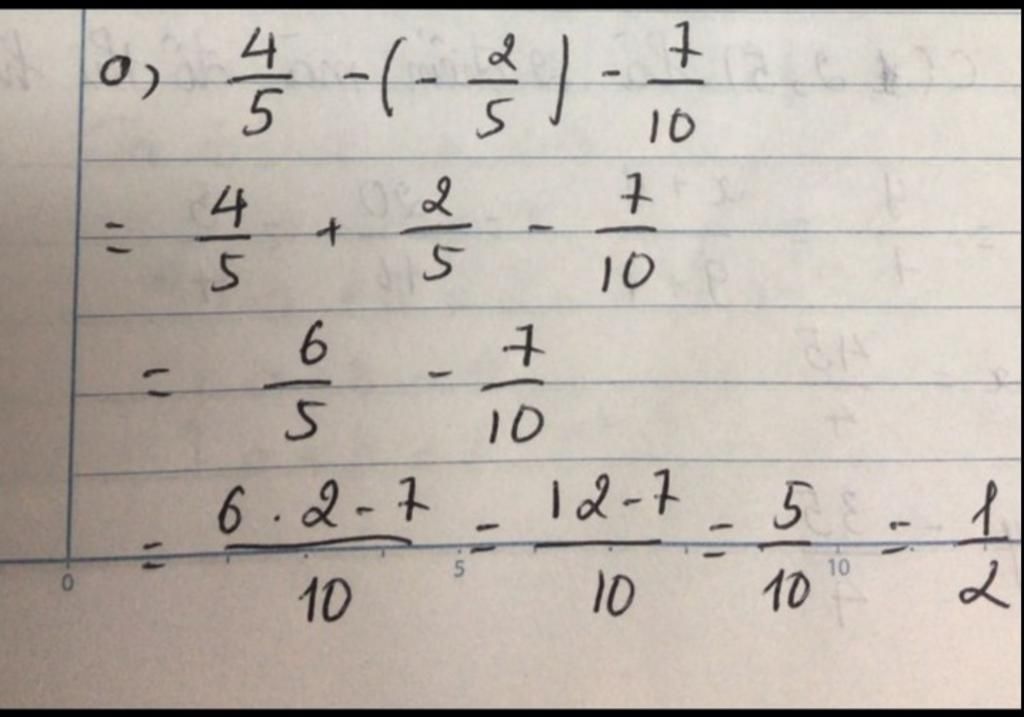 a) 4/5 - (- 2/5) - 7/10
= 4/5 + 2/5 - 7/10
= 6/5 - 7/10
= (6 . 2 - 7)/10 = (12 - 7)/10 = 5/10 = 1/2
0 5 10